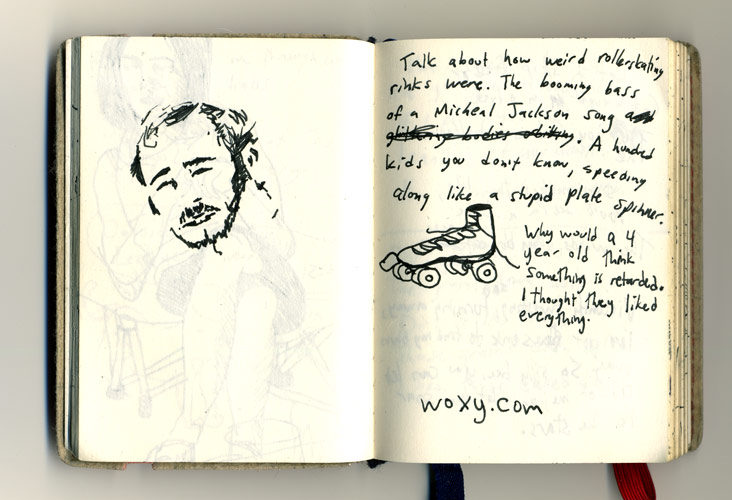 Talk about how weird rollerskating
rinks were. The booming bass
of a Micheal Jackson song
glittering bodies . A hundred
kids you don't know, speeding
along like a stupid plate spinner.
Why would a 4
year old think
something is retarded.
I thought they liked
everything.
woxy.com